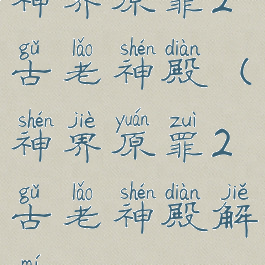 神界原罪2
gǔ lǎo shén diàn
古老神殿（
shén jiè yuán zuì
神界原罪2
gǔ lǎo shén diàn jiě
古老神殿解
mí